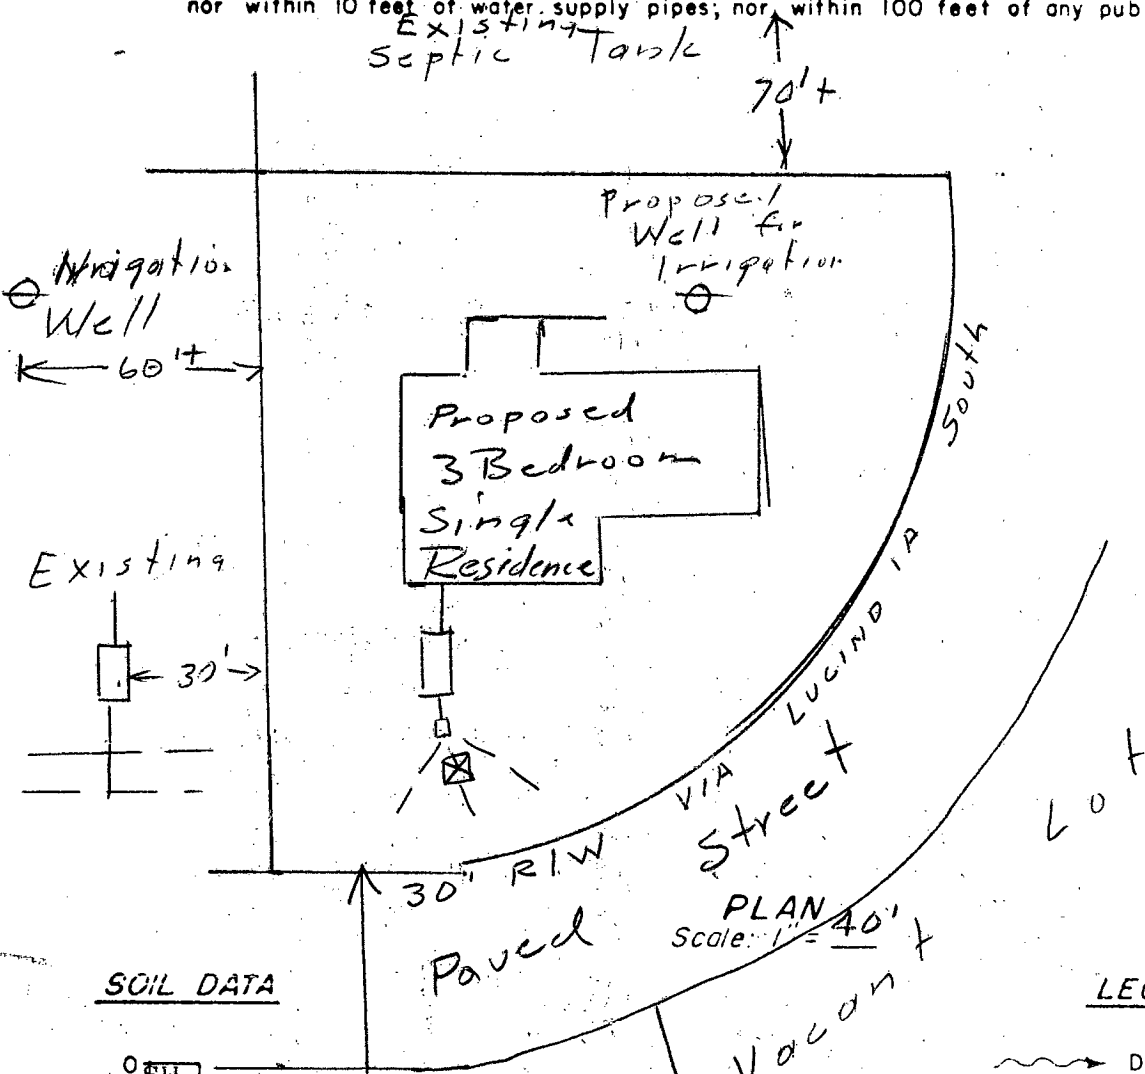 nor within 10 feet of water supply pipes; nor within 100 feet of any pub
Existing
Septic Tank
70'±
Proposed
Well for
Irrigation
Irrigation
Well
60'±
South
Proposed
3 Bedroom
Single
Residence
Existing
30'
VIA LUCINDIA
Street
Lot
30' R/W
PLAN
Scale: 1" = 40'
Paved
Vacant
SOIL DATA
LEG
0
D